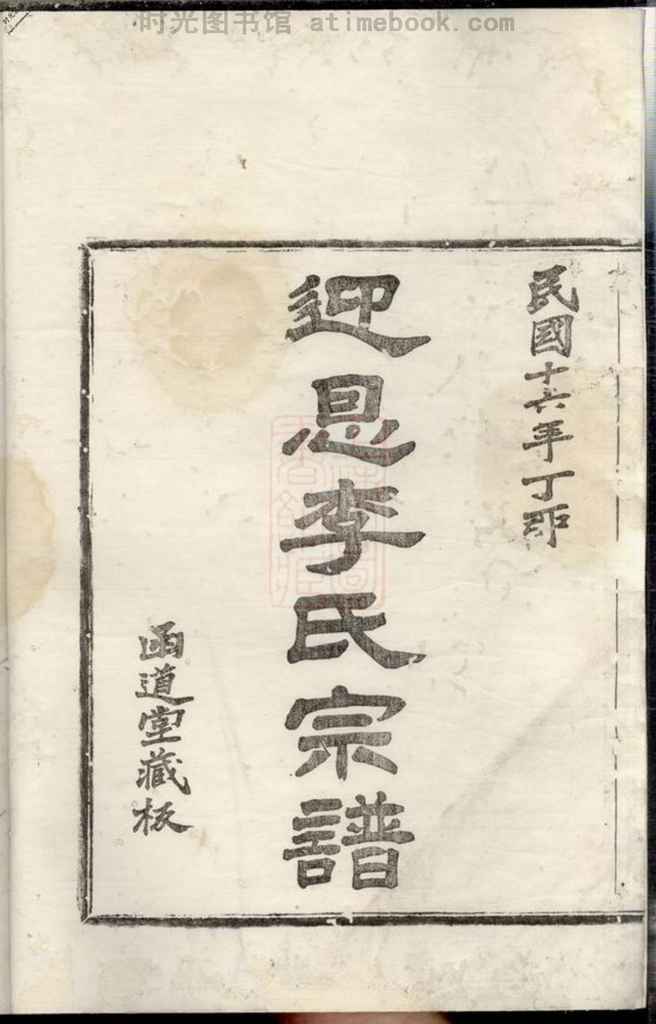 时光图书馆 atimebook.com
民國十六年丁卯
迎恩李氏宗譜
函道堂藏板